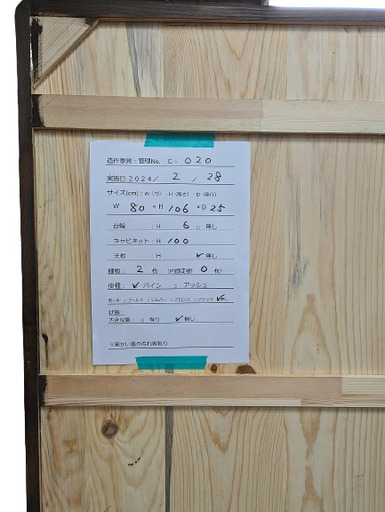 造作家具：管理No. C- 020
実施日:2024/ 2 / 28
サイズ(cm)：W(巾) ・H(高さ)・D(奥行)
W 80 ×H 106 ×D 25
台輪 : H 6 □ 無し
キャビネット：H 100
天板 : H ✓ 無し
棚板: 2 枚 (内固定棚 0 枚)
樹種： ✓ パイン □ アッシュ
□ゴールド □シルバー □ブロンズ □ブラック ✓無し
状態：
大きな傷: □ 有り ✓ 無し
※細かい傷や汚れ等有り